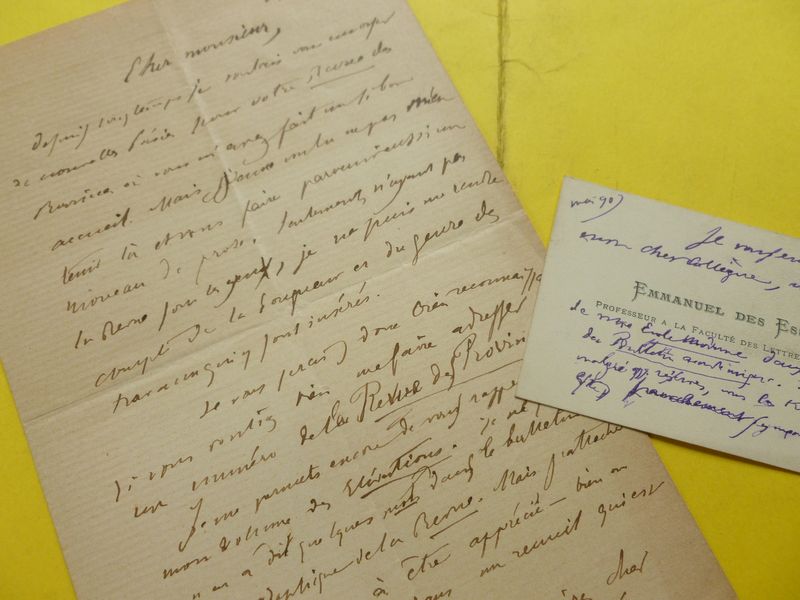 Cher monsieur,
depuis longtemps je voulais vous envoyer
de nouvelles Poésies pour votre Revue des
où vous m'avez fait un si bon
accueil. Mais j'aurais voulu ne pas m'en
tenir là et vous faire parvenir aussi un
morceau de prose. Seulement, n'ayant pas
la Revue sous les yeux, je ne puis me rendre
compte de la longueur et du genre des
travaux qui y sont insérés.
Je vous serais donc bien reconnaissant
si vous vouliez bien me faire adresser
un numéro de la Revue des Provin
Je me permets encore de vous rappeler
mon volume des Elévations. Je ne
on a dit quelques mots dans le bulletin
de la Revue. Mais j'attache
à être apprécié bien ou
dans un recueil qui est
cher
mai 90
Je
mon cher collègue,
EMMANUEL DES ES
PROFESSEUR A LA FACULTÉ DES LETTRE
de votre Ecole Moderne dans
du Bulletin
malgré
et franchement sympa